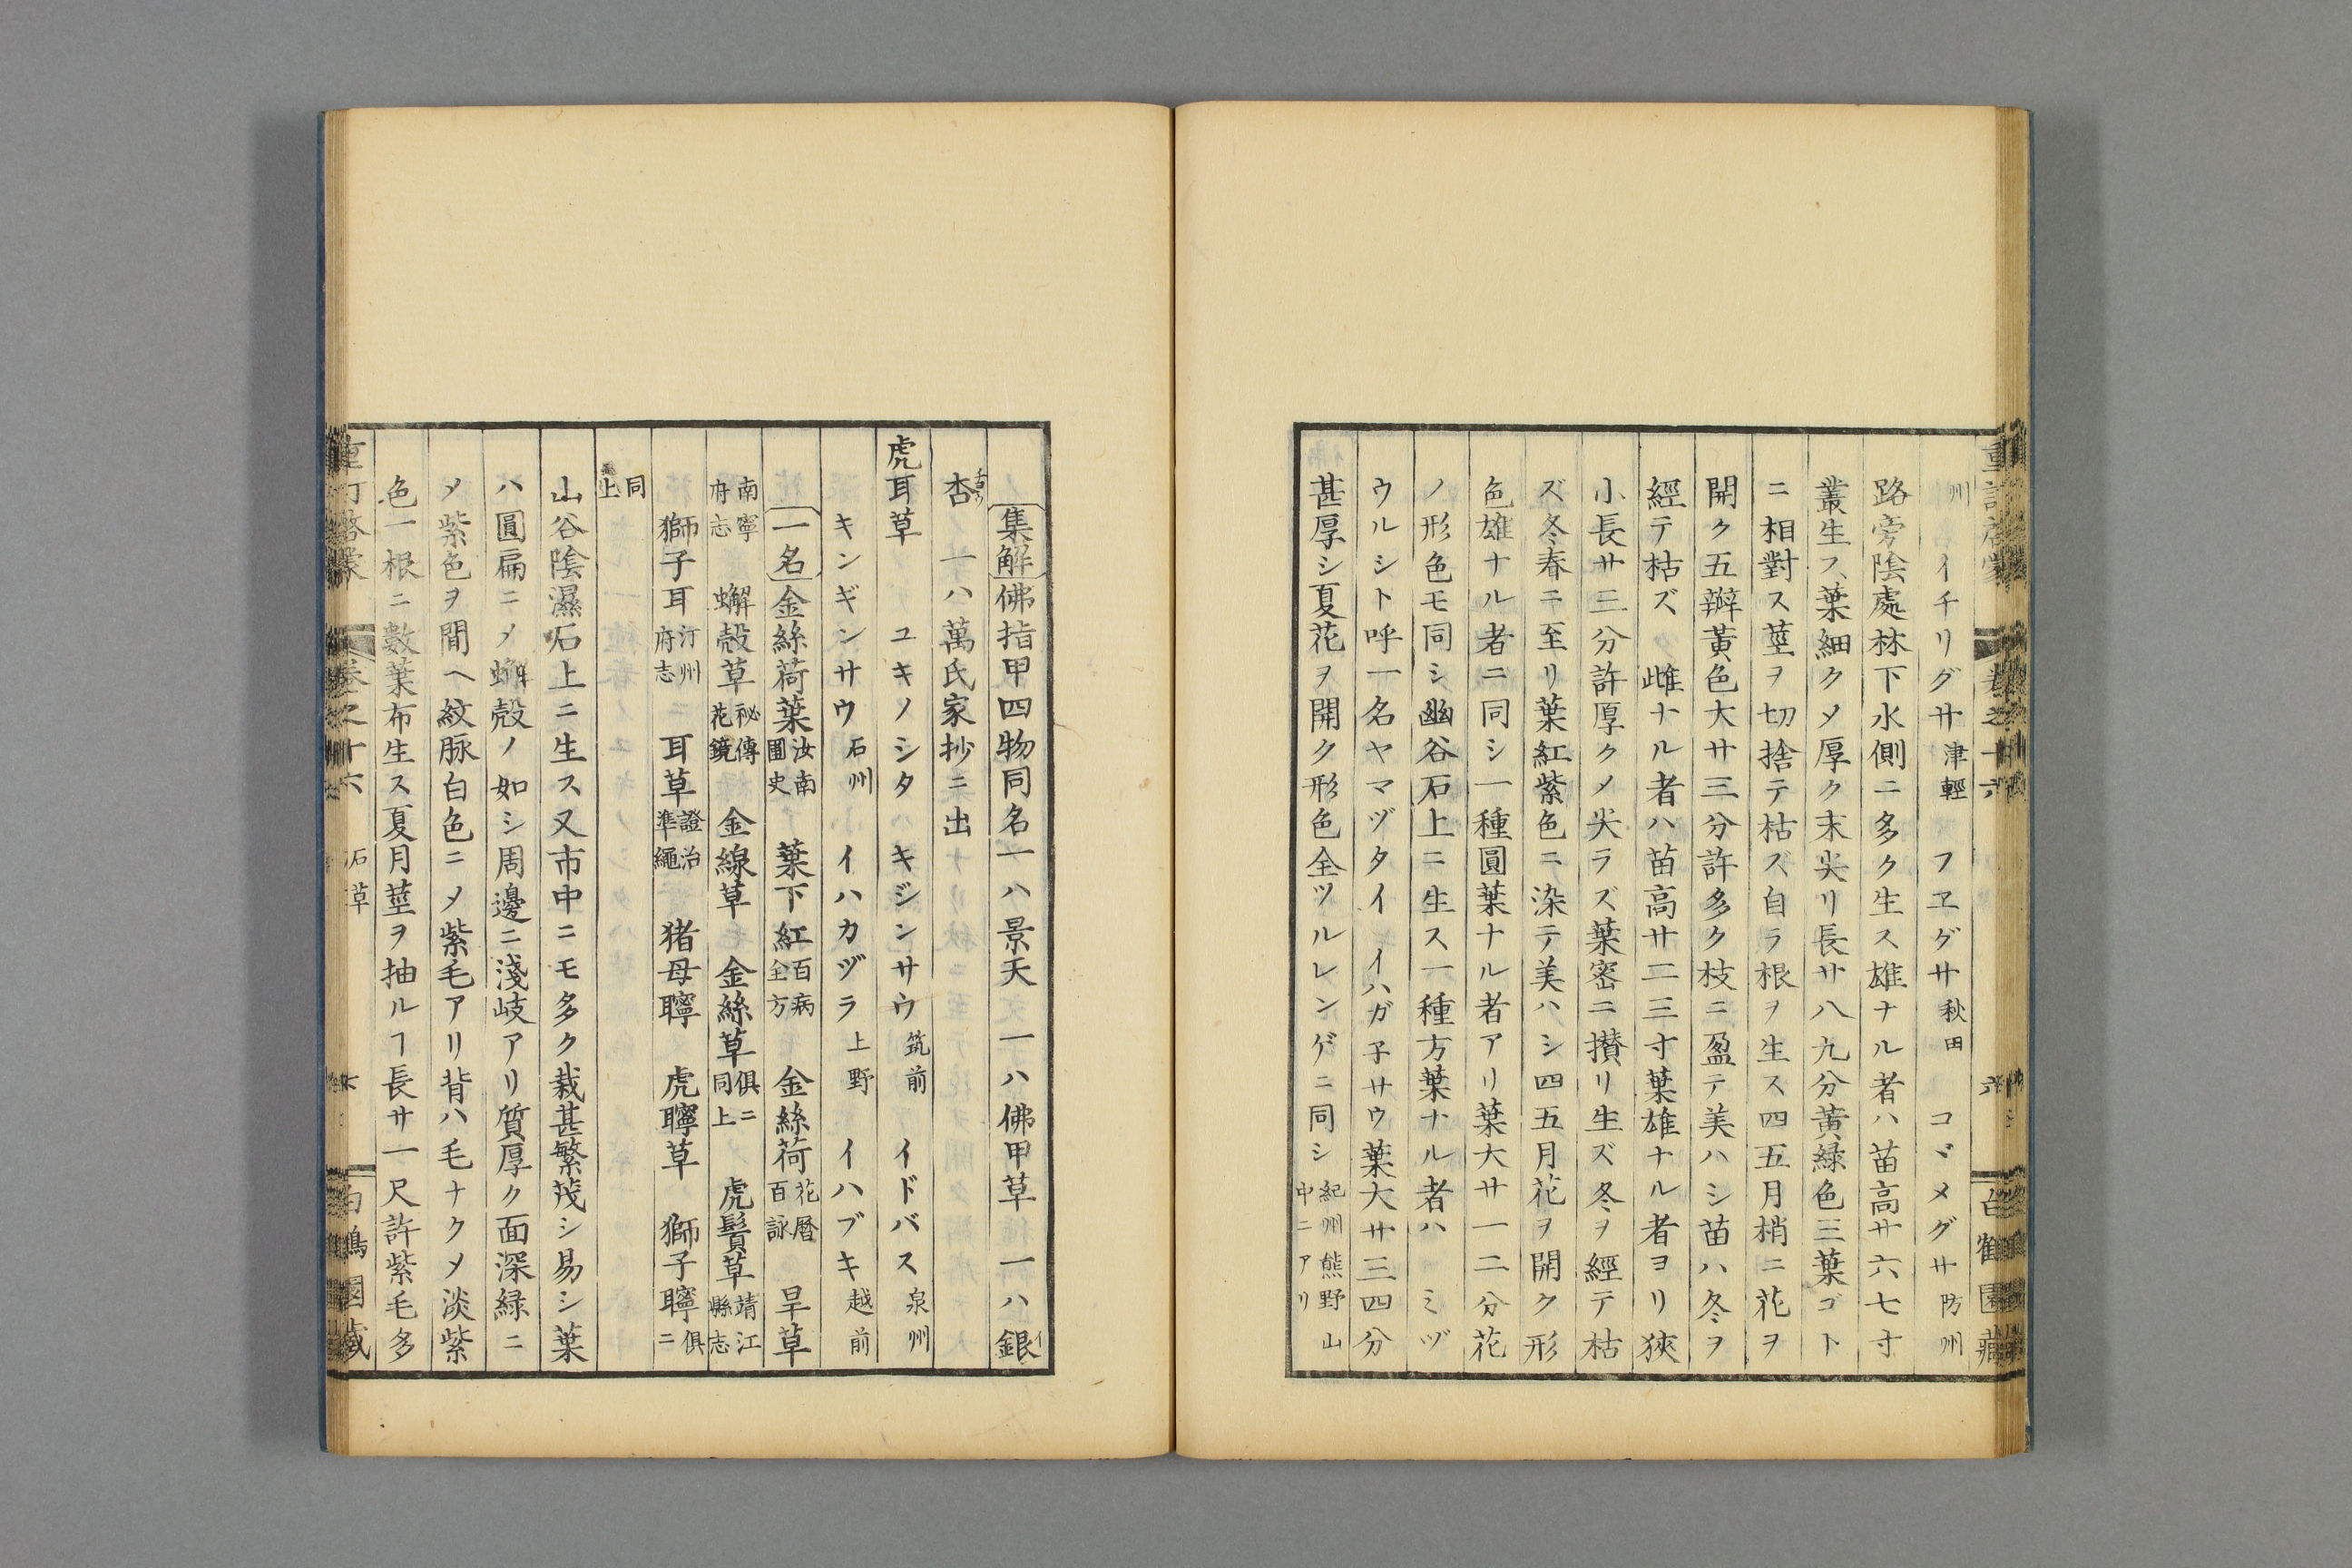 州 イチリグサ 津輕 フヱグサ 秋田 コヾメグサ 防州
路旁陰處林下水側ニ多ク生ス雄ナル者ハ苗高サ六七寸
叢生ス葉細クメ厚ク末尖リ長サ八九分黃緑色三葉ゴト
ニ相對ス莖ヲ切捨テ枯ズ自ラ根ヲ生ス四五月梢ニ花ヲ
開ク五瓣黃色大サ三分許多ク枝ニ盈テ美ハシ苗ハ冬ヲ
經テ枯ズ 雌ナル者ハ苗高サ二三寸葉雄ナル者ヨリ狹
小長サ三分許厚クメ尖ラズ葉密ニ攅リ生ズ冬ヲ經テ枯
ズ冬春ニ至リ葉紅紫色ニ染テ美ハシ四五月花ヲ開ク形
色雄ナル者ニ同シ一種圓葉ナル者アリ葉大サ一二分花
ノ形色モ同シ幽谷石上ニ生ス一種方葉ナル者ハ ミヅ
ウルシト呼一名ヤマヅタイ イハガ子サウ葉大サ三四分
甚厚シ夏花ヲ開ク形色全ツルレンゲニ同シ 紀州熊野山中ニアリ
重訂啓蒙 卷之十六 六 白鶴園藏
集解佛指甲四物同名一ハ景天 一ハ佛甲草 一ハ銀
杏 一ハ萬氏家抄ニ出
虎耳草 ユキノシタ キジンサウ 筑前 イドバス 泉州
キンギンサウ 石州 イハカヅラ 上野 イハブキ 越前
一名金絲荷葉 汝南圃史 葉下紅 百病全方 金絲荷 花曆百詠 旱草
南寧府志 蠏殼草 祕傳花鏡 金線草 金絲草 俱ニ同上 虎鬚草 靖江縣志
獅子耳 汀州府志 耳草 證治準繩 猪母聹 虎聹草 獅子聹 俱ニ
同上
山谷陰濕石上ニ生ス又市中ニモ多ク栽甚繁茂シ易シ葉
ハ圓扁ニメ蠏殼ノ如シ周邊ニ淺岐アリ質厚ク面深緑ニ
メ紫色ヲ間ヘ紋脉白色ニメ紫毛アリ背ハ毛ナクメ淡紫
色一根ニ數葉布生ス夏月莖ヲ抽ルヿ長サ一尺許紫毛多
重訂啓蒙 卷之十六 石草 白鶴園藏